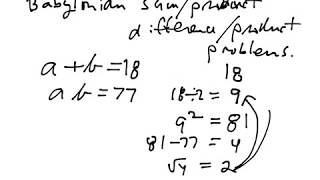 Babylonian sum/product
difference/product
problems.
a+b=18
ab=77
18
18÷2=9
9²=81
81-77=4
√4=2